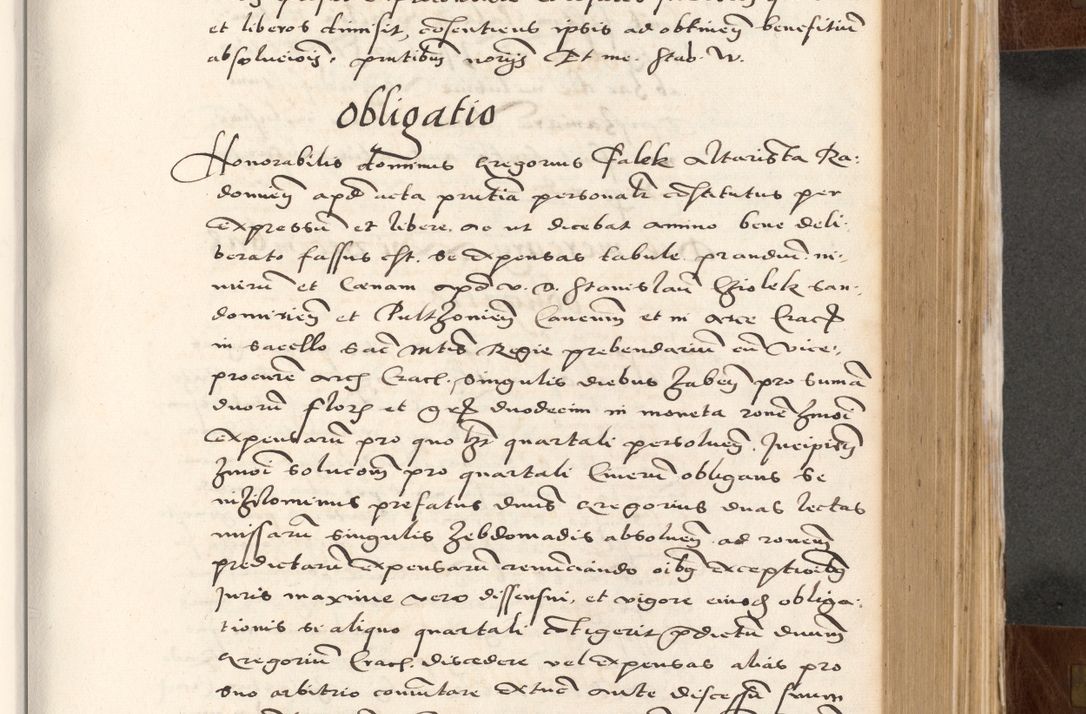 et liberos dimisit, cosentiens ipsis ad obtinen benefitiu
absoluciois, prntibus noryis Et me. Stab. W.
Obligatio
Honorabilis dominus Gregorius Falek Altarista Ra:
domien apd acta prntia personalr costitutus per
Expressu et libere, ac ut dicebat animo bene deli:
berato fassus est. Se Expensas tabule prandiu ni:
miru et Cœnam apd v. D. Stanislau Chiolek San:
domirien et Pultzonien Canonicum et in Arce Crac
in sacello Sac Mtis Regie prebendariu cu Vice:
procure Arch Crac. Singulis diebus haben pro suma
duoru floren et gr duodecim in moneta rone hmoi
Expensaru pro quo lzt quartali persoluen. Incipien
hmoi solucom pro quartali Cineru obligans se
nihilominus prefatus dnus Gregorius duas lectas
missaru singulis hebdomadis absoluen ad ronem
predictaru Expensaru renunciando oibus exceptioibus
Juris maxime vero dissensui, et vigore eiusd obliga:
tionis si aliquo quartali cotigerit pdictu dnum
Gregoriu Crac. discedere vel Expensas alias pro
suo arbitrio comutare extuc ante discessu suum